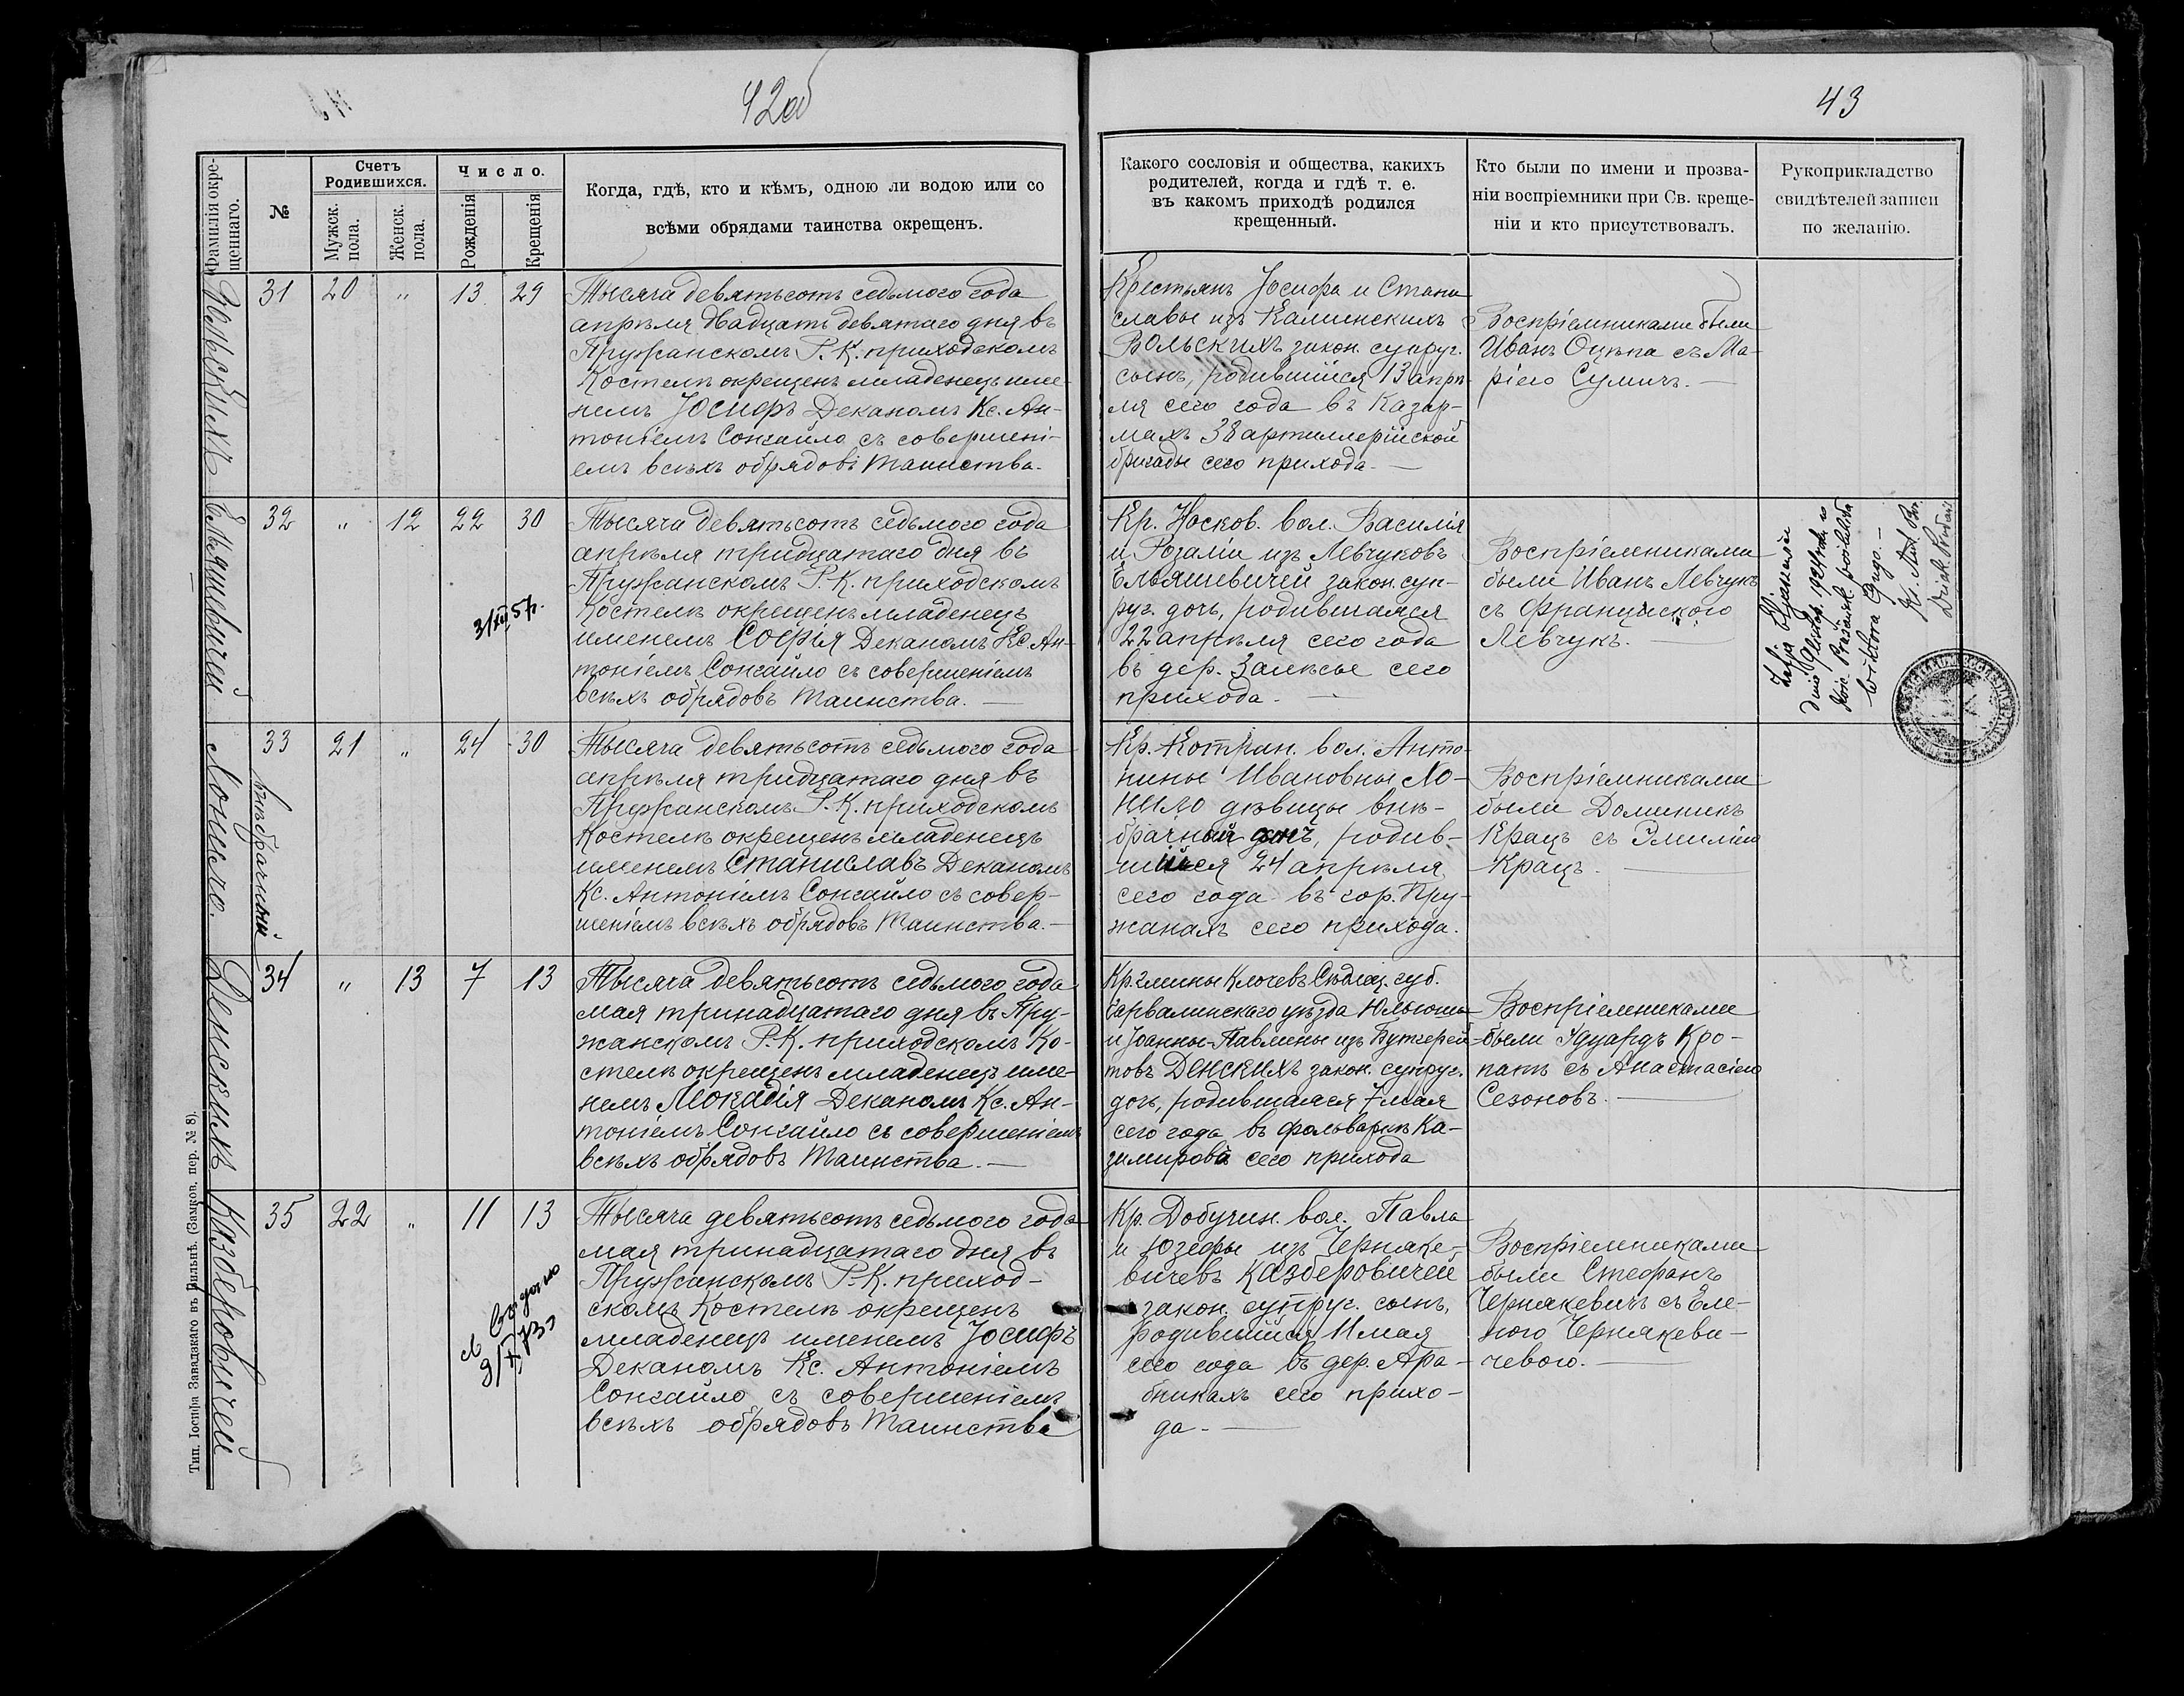 42об
43
Фамилія окре-
щеннаго.
№
Счетъ
Родившихся.
Мужск.
пола.
Женск.
пола.
Число.
Рожденія
Крещенія
Когда, гдѣ, кто и кѣмъ, одною ли водою или со
всѣми обрядами таинства окрещенъ.
Какого сословія и общества, какихъ
родителей, когда и гдѣ т. е.
въ какомъ приходѣ родился
крещенный.
Кто были по имени и прозва-
ніи воспріемники при Св. креще-
ніи и кто присутствовалъ.
Рукоприкладство
свидѣтелей записи
по желанію.
Вольскихъ
31 20 " 13 29
Тысяча девятьсотъ седьмого года
апрѣля двадцать девятаго дня въ
Пружанскомъ Р. К. приходскомъ
Костелѣ окрещенъ младенецъ име-
немъ Іосифъ Деканомъ Кс. Ан-
тоніемъ Сонгайло съ совершені-
емъ всѣхъ обрядовъ Таинства.
Крестьянъ Іосифа и Стани-
славы изъ Калинскихъ
Вольскихъ закон. супруг.
сынъ, родившійся 13 апрѣ-
ля сего года въ Казар-
махъ 38 артиллерійской
бригады сего прихода.
Воспріемниками были
Иванъ Оцѣпа съ Ма-
ріею Сумичъ.
Ельяшевичей
32 " 12 22 30
31/XII 57 г.
Тысяча девятьсотъ седьмого года
апрѣля тридцатаго дня въ
Пружанскомъ Р. К. приходскомъ
Костелѣ окрещенъ младенецъ
именемъ Софья Деканомъ Кс. Ан-
тоніемъ Сонгайло съ совершеніемъ
всѣхъ обрядовъ Таинства.
Кр. Носков. вол. Василія
и Розаліи изъ Левчуковъ
Ельяшевичей закон. суп-
руг. дочь, родившаяся
22 апрѣля сего года
въ дер. Залѣсье сего
прихода.
Воспріемниками
были Иванъ Левчукъ
съ Францишкою
Левчукъ.
Zofja Eljaszewicz
dnia 9 listop. 1924 roku w
kośc. Prużańsk. poślubiła
Wiktora
Ks. Ant.
Лонило.
33 21 " 24 30
внѣбрачный
Тысяча девятьсотъ седьмого года
апрѣля тридцатаго дня въ
Пружанскомъ Р. К. приходскомъ
Костелѣ окрещенъ младенецъ
именемъ Станиславъ Деканомъ
Кс. Антоніемъ Сонгайло съ совер-
шеніемъ всѣхъ обрядовъ Таинства.
Кр. Котран. вол. Анто-
нины Ивановны Ло-
нило дѣвицы внѣ-
брачный сынъ, родив-
шийся 24 апрѣля
сего года въ гор. Пру-
жанахъ сего прихода.
Воспріемниками
были Доминикъ
Крацъ съ Эмиліею
Крацъ.
Денскихъ
34 " 13 7 13
Тысяча девятьсотъ седьмого года
мая тринадцатаго дня въ Пру-
жанскомъ Р. К. приходскомъ Ко-
стелѣ окрещенъ младенецъ име-
немъ Леокадія Деканомъ Кс. Ан-
тоніемъ Сонгайло съ совершеніемъ
всѣхъ обрядовъ Таинства.
Кр. гмины Ключевъ Сѣдлец. губ.
Гарволинскаго уѣзда Юльюша
и Іоанны-Павлины изъ Бутгерей-
товъ Денскихъ закон. супруг.
дочь, родившаяся 7 мая
сего года въ фольваркѣ Ка-
зимирово сего прихода
Воспріемниками
были Эдуардъ Кро-
патъ съ Анастасіею
Сезоновъ.
Казберовичей
35 22 " 11 13
Выдано
Тысяча девятьсотъ седьмого года
мая тринадцатаго дня въ
Пружанскомъ Р. К. приход-
скомъ Костелѣ окрещенъ
младенецъ именемъ Іосифъ
Деканомъ Кс. Антоніемъ
Сонгайло съ совершеніемъ
всѣхъ обрядовъ Таинства
Кр. Добучин. вол. Павла
и Юзефы изъ Черняке-
вичевъ Казберовичей
закон. супруг. сынъ,
родившійся 11 мая
сего года въ дер. Ара-
бникахъ сего прихо-
да.
Воспріемниками
были Стефанъ
Чернякевичъ съ Еле-
ною Чернякеви-
чевою.
Тип. Іосифа Завадзкаго въ Вильнѣ. (Замков. пер. № 8).